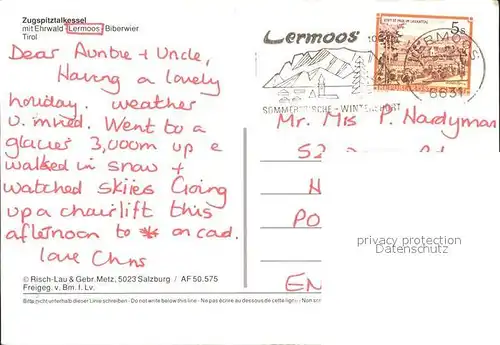 Zugspitztalkessel
mit Ehrwald-Lermoos-Biberwier
Tirol
Dear Auntie + Uncle,
Having a lovely
holiday. weather
v. mixed. Went to a
glacier 3,000m up &
walked in snow +
watched skiies Going
up a chairlift this
afternoon to on cad.
love Chris
© Risch-Lau & Gebr. Metz, 5023 Salzburg / AF 50.575
Freigeg. v. Bm. f. Lv.
Bitte nicht unterhalb dieser Linie schreiben - Do not write below this line - Ne pas écrire au dessous de cette ligne
Lermoos
SOMMERFRISCHE - WINTERSPORT
LERMOOS
6631
5s
Mr. Mrs P Nardyman
52
N
PO
EN
privacy protection
Datenschutz
oldthing.com